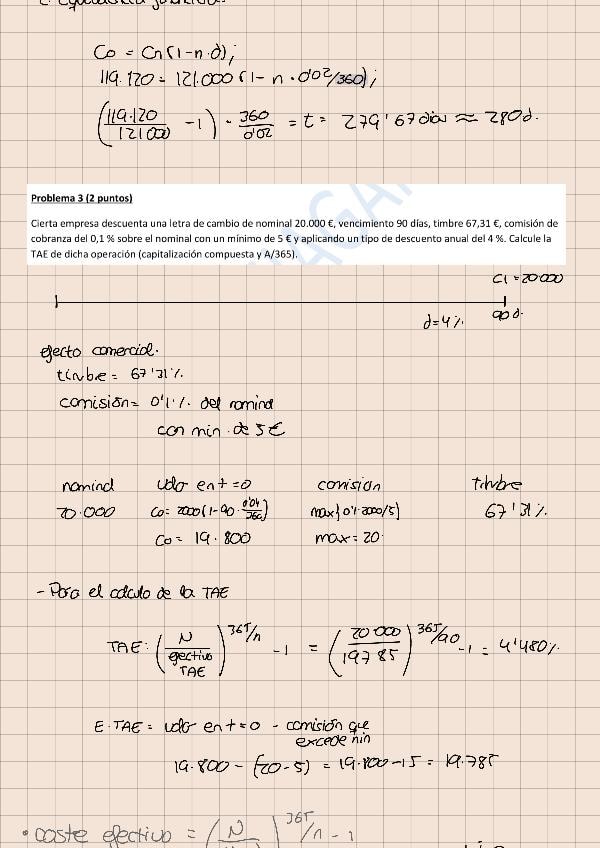 2. Equivalencia
Co = Cn(1-n·d);
119.120 = 121.000 (1- n · 0'02/360);
(119.120/121000 -1) · 360/0'02 = t = 279'67 dias ≈ 280d.
Problema 3 (2 puntos)
Cierta empresa descuenta una letra de cambio de nominal 20.000 €, vencimiento 90 días, timbre 67,31 €, comisión de
cobranza del 0,1 % sobre el nominal con un mínimo de 5 € y aplicando un tipo de descuento anual del 4 %. Calcule la
TAE de dicha operación (capitalización compuesta y A/365).
C1 = 20000
d=4%
90d.
efecto comercial.
timbre = 67'31%
comisión = 0'1% del nominal
con min. de 5€
nominal vdo en t=0 comision timbre
20.000 Co= 2000(1-90· 0'04/360) max{0'1·2000/5} 67'31%
Co = 19.800 max = 20
- Para el calculo de la TAE
TAE: (N/efectivo TAE)^365/n -1 = (20000/19785)^365/90 -1 = 4'480%
E·TAE = vdo en t=0 - comisión que
excede min
19.800 - (20-5) = 19.800-15 = 19.785
• coste efectivo = (N/ )^365/n - 1